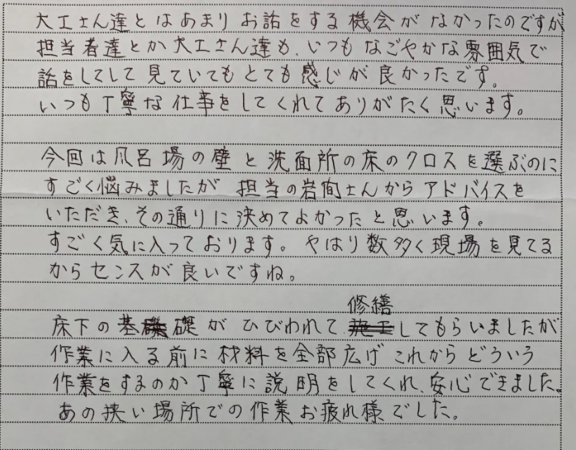 大工さん達とはあまりお話をする機会がなかったのですが
担当者達とか大工さん達も、いつもなごやかな雰囲気で
話をしてして見ていてもとても感じが良かったです。
いつも丁寧な仕事をしてくれてありがたく思います。
今回は風呂場の壁と洗面所の床のクロスを選ぶのに
すごく悩みましたが 担当の岩間さんからアドバイスを
いただき、その通りに決めてよかったと思います。
すごく気に入っております。やはり数多く現場を見てる
からセンスが良いですね。
修繕
床下の基礎がひびわれて してもらいましたが
作業に入る前に材料を全部広げ これからどういう
作業をするのか丁寧に説明をしてくれ、安心できました。
あの狭い場所での作業お疲れ様でした。